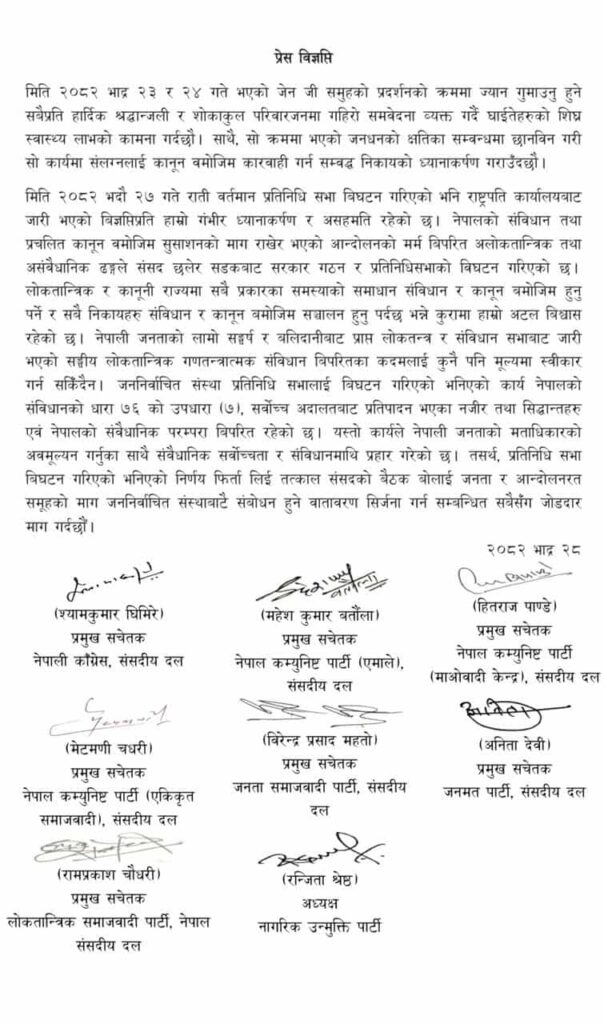 प्रेस विज्ञप्ति
मिति २०८२ भाद्र २३ र २४ गते भएको जेन जी समुहको प्रदर्शनको क्रममा ज्यान गुमाउनु हुने
सबैप्रति हार्दिक श्रद्धान्जली र शोकाकुल परिवारजनमा गहिरो समवेदना व्यक्त गर्दै घाईतेहरुको शिघ्र
स्वास्थ्य लाभको कामना गर्दछौ। साथै, सो क्रममा भएको जनधनको क्षतिका सम्बन्धमा छानविन गरी
सो कार्यमा संलग्नलाई कानून वमोजिम कारवाही गर्न सम्वद्ध निकायको ध्यानाकर्षण गराउँदछौ।
मिति २०८२ भदौ २७ गते राती वर्तमान प्रतिनिधि सभा विघटन गरिएको भनि राष्ट्रपति कार्यालयबाट
जारी भएको विज्ञप्तिप्रति हाम्रो गंभीर ध्यानाकर्षण र असहमति रहेको छ। नेपालको संविधान तथा
प्रचलित कानून वमोजिम सुसाशनको माग राखेर भएको आन्दोलनको मर्म विपरित अलोकतान्त्रिक तथा
असंवैधानिक ढङ्गले संसद छलेर सडकबाट सरकार गठन र प्रतिनिधिसभाको विघटन गरिएको छ।
लोकतान्त्रिक र कानूनी राज्यमा सबै प्रकारका समस्याको समाधान संविधान र कानून वमोजिम हुनु
पर्ने र सबै निकायहरु संविधान र कानून वमोजिम सञ्चालन हुनु पर्दछ भन्ने कुरामा हाम्रो अटल विश्वास
रहेको छ। नेपाली जनताको लामो सङ्घर्ष र बलिदानीबाट प्राप्त लोकतन्त्र र संविधान सभाबाट जारी
भएको सङ्घीय लोकतान्त्रिक गणतन्त्रात्मक संविधान विपरितका कदमलाई कुनै पनि मूल्यमा स्वीकार
गर्न सकिँदैन। जननिर्वाचित संस्था प्रतिनिधि सभालाई विघटन गरिएको भनिएको कार्य नेपालको
संविधानको धारा ७६ को उपधारा (७), सर्वोच्च अदालतबाट प्रतिपादन भएका नजीर तथा सिद्धान्तहरु
एवं नेपालको संवैधानिक परम्परा विपरित रहेको छ। यस्तो कार्यले नेपाली जनताको मताधिकारको
अवमूल्यन गर्नुका साथै संवैधानिक सर्वोच्चता र संविधानमाथि प्रहार गरेको छ। तसर्थ, प्रतिनिधि सभा
विघटन गरिएको भनिएको निर्णय फिर्ता लिई तत्काल संसदको बैठक बोलाई जनता र आन्दोलनरत
समूहको माग जननिर्वाचित संस्थाबाटै संबोधन हुने वातावरण सिर्जना गर्न सम्बन्धित सबैसँग जोडदार
माग गर्दछौं।
२०८२ भाद्र २८
(श्यामकुमार घिमिरे)
प्रमुख सचेतक
नेपाली काँग्रेस, संसदीय दल
(महेश कुमार बर्तौला)
प्रमुख सचेतक
नेपाल कम्युनिष्ट पार्टी (एमाले),
संसदीय दल
(हितराज पाण्डे)
प्रमुख सचेतक
नेपाल कम्युनिष्ट पार्टी
(माओवादी केन्द्र), संसदीय दल
(मेटमणी चधरी)
प्रमुख सचेतक
नेपाल कम्युनिष्ट पार्टी (एकिकृत
समाजवादी), संसदीय दल
(विरेन्द्र प्रसाद महतो)
प्रमुख सचेतक
जनता समाजवादी पार्टी, संसदीय
दल
(अनिता देवी)
प्रमुख सचेतक
जनमत पार्टी, संसदीय दल
(रामप्रकाश चौधरी)
प्रमुख सचेतक
लोकतान्त्रिक समाजवादी पार्टी, नेपाल
संसदीय दल
(रन्जिता श्रेष्ठ)
अध्यक्ष
नागरिक उन्मुक्ति पार्टी